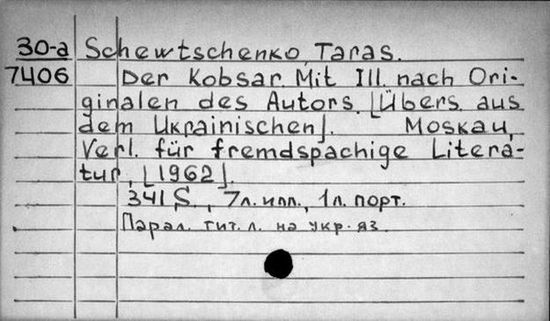 30-а Schewtschenko, Taras.
7406 Der Kobsar. Mit Ill. nach Ori-
ginalen des Autors. [Übers. aus
dem Ukrainischen]. Moskau,
Verl. für fremdspachige Litera-
tur, [1962].
341 S., 7л. илл., 1л. порт.
Парал. тит. л. на укр. яз.